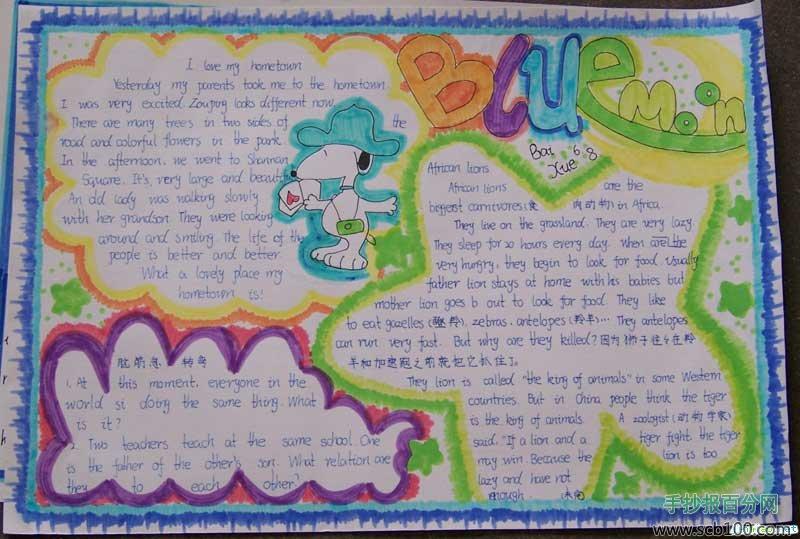 BLUE Moon
Bai 6.8
Xue
I love my hometown
Yesterday my parents took me to the hometown.
I was very excited. Zouping looks different now.
There are many trees in two sides of the
road and colorful flowers in the park.
In the afternoon, we went to Shannan
Square. It's, very large and beautiful
An old lady was walking slowly
with her grandson. They were looking
around and smiling. The life of the
people is better and better.
What a lovely place my
hometown is!
脑筋急 转弯
1. At this moment, everyone in the
world si doing the same thing. What
is it?
2. Two teachers teach at the same school. One
is the father of the other's son. What relation are
they to each other?
African lions
African lions are the
biggest carnivores(食 肉动物) in Africa.
They live on the grassland. They are very lazy.
They sleep for 20 hours every day. When are the
very hungry, they begin to look for food. Usually
father lion stays at home with his babies but
mother lion goes b out to look for food. They like
to eat gazelles (瞪羚), zebras, antelopes (羚羊)... They antelopes
can run very fast. But why are they killed? 因为狮子往往在羚
羊和加速冠之前就把它抓住了。
They lion is called "the king of animals" in some Western
countries. But in China people think the tiger
is the king of animals. A zoologist (动物学家)
said, "If a lion and a tiger fight, the tiger
may win. Because the lion is too
lazy and have not
enough
手抄报百分网
www.scb100.com